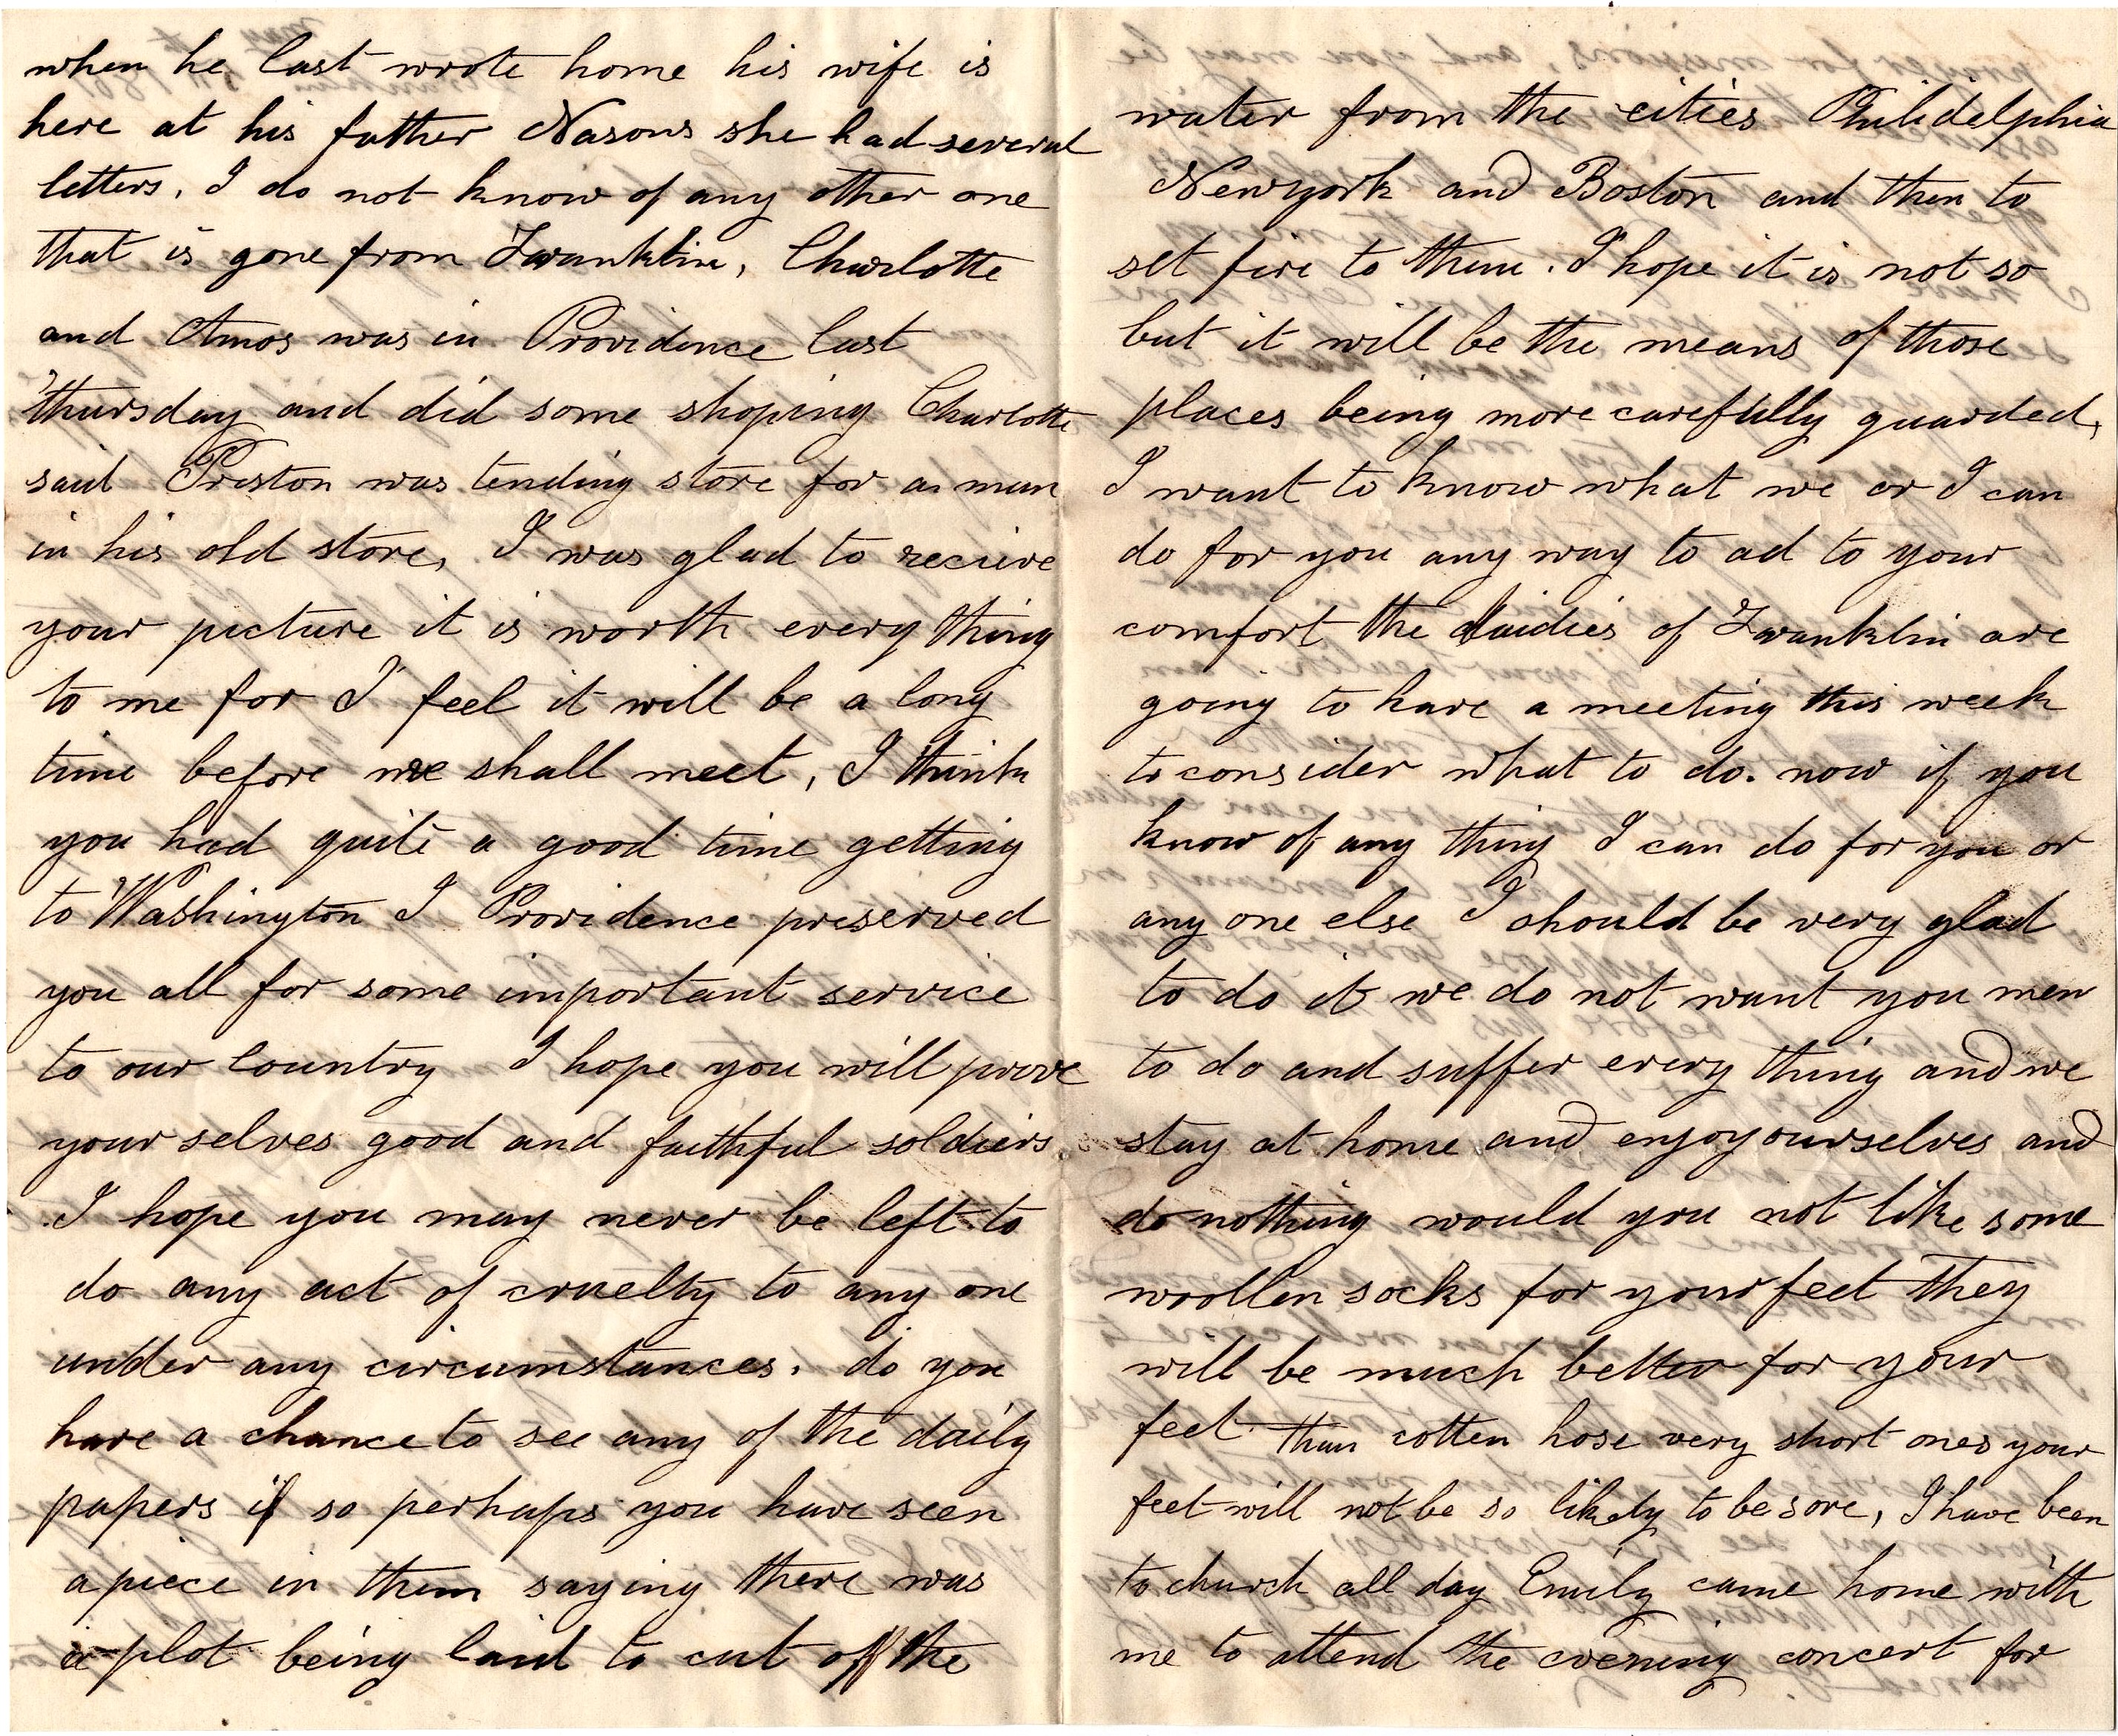 when he last wrote home his wife is
here at his father Nasons she had several
letters, I do not know of any other one
that is gone from Franklin, Charlotte
and Amos was in Providence last
thursday and did some shoping Charlotte
said Preston was tending store for a man
in his old store, I was glad to recieve
your picture it is worth every thing
to me for I feel it will be a long
time before we shall meet, I think
you had quite a good time getting
to Washington I Providence preserved
you all for some important service
to our country I hope you will prove
your selves good and faithful soldiers
I hope you may never be left to
do any act of cruelty to any one
under any circumstances. do you
have a chance to see any of the daily
papers if so perhaps you have seen
a piece in them saying there was
a plot being laid to cut off the
water from the cities Philidelphia
Newyork and Boston and then to
set fire to them. I hope it is not so
but it will be the means of those
places being more carefully guarded,
I want to know what we or I can
do for you any way to ad to your
comfort the laidies of Franklin are
going to have a meeting this week
to consider what to do. now if you
know of any thing I can do for you or
any one else I should be very glad
to do it we do not want you men
to do and suffer every thing and we
stay at home and enjoy ourselves and
do nothing would you not like some
woollen socks for your feet they
will be much better for your
feet than cotten hose very short ones your
feet will not be so likely to be sore, I have been
to church all day Emily came home with
me to attend the evening concert for